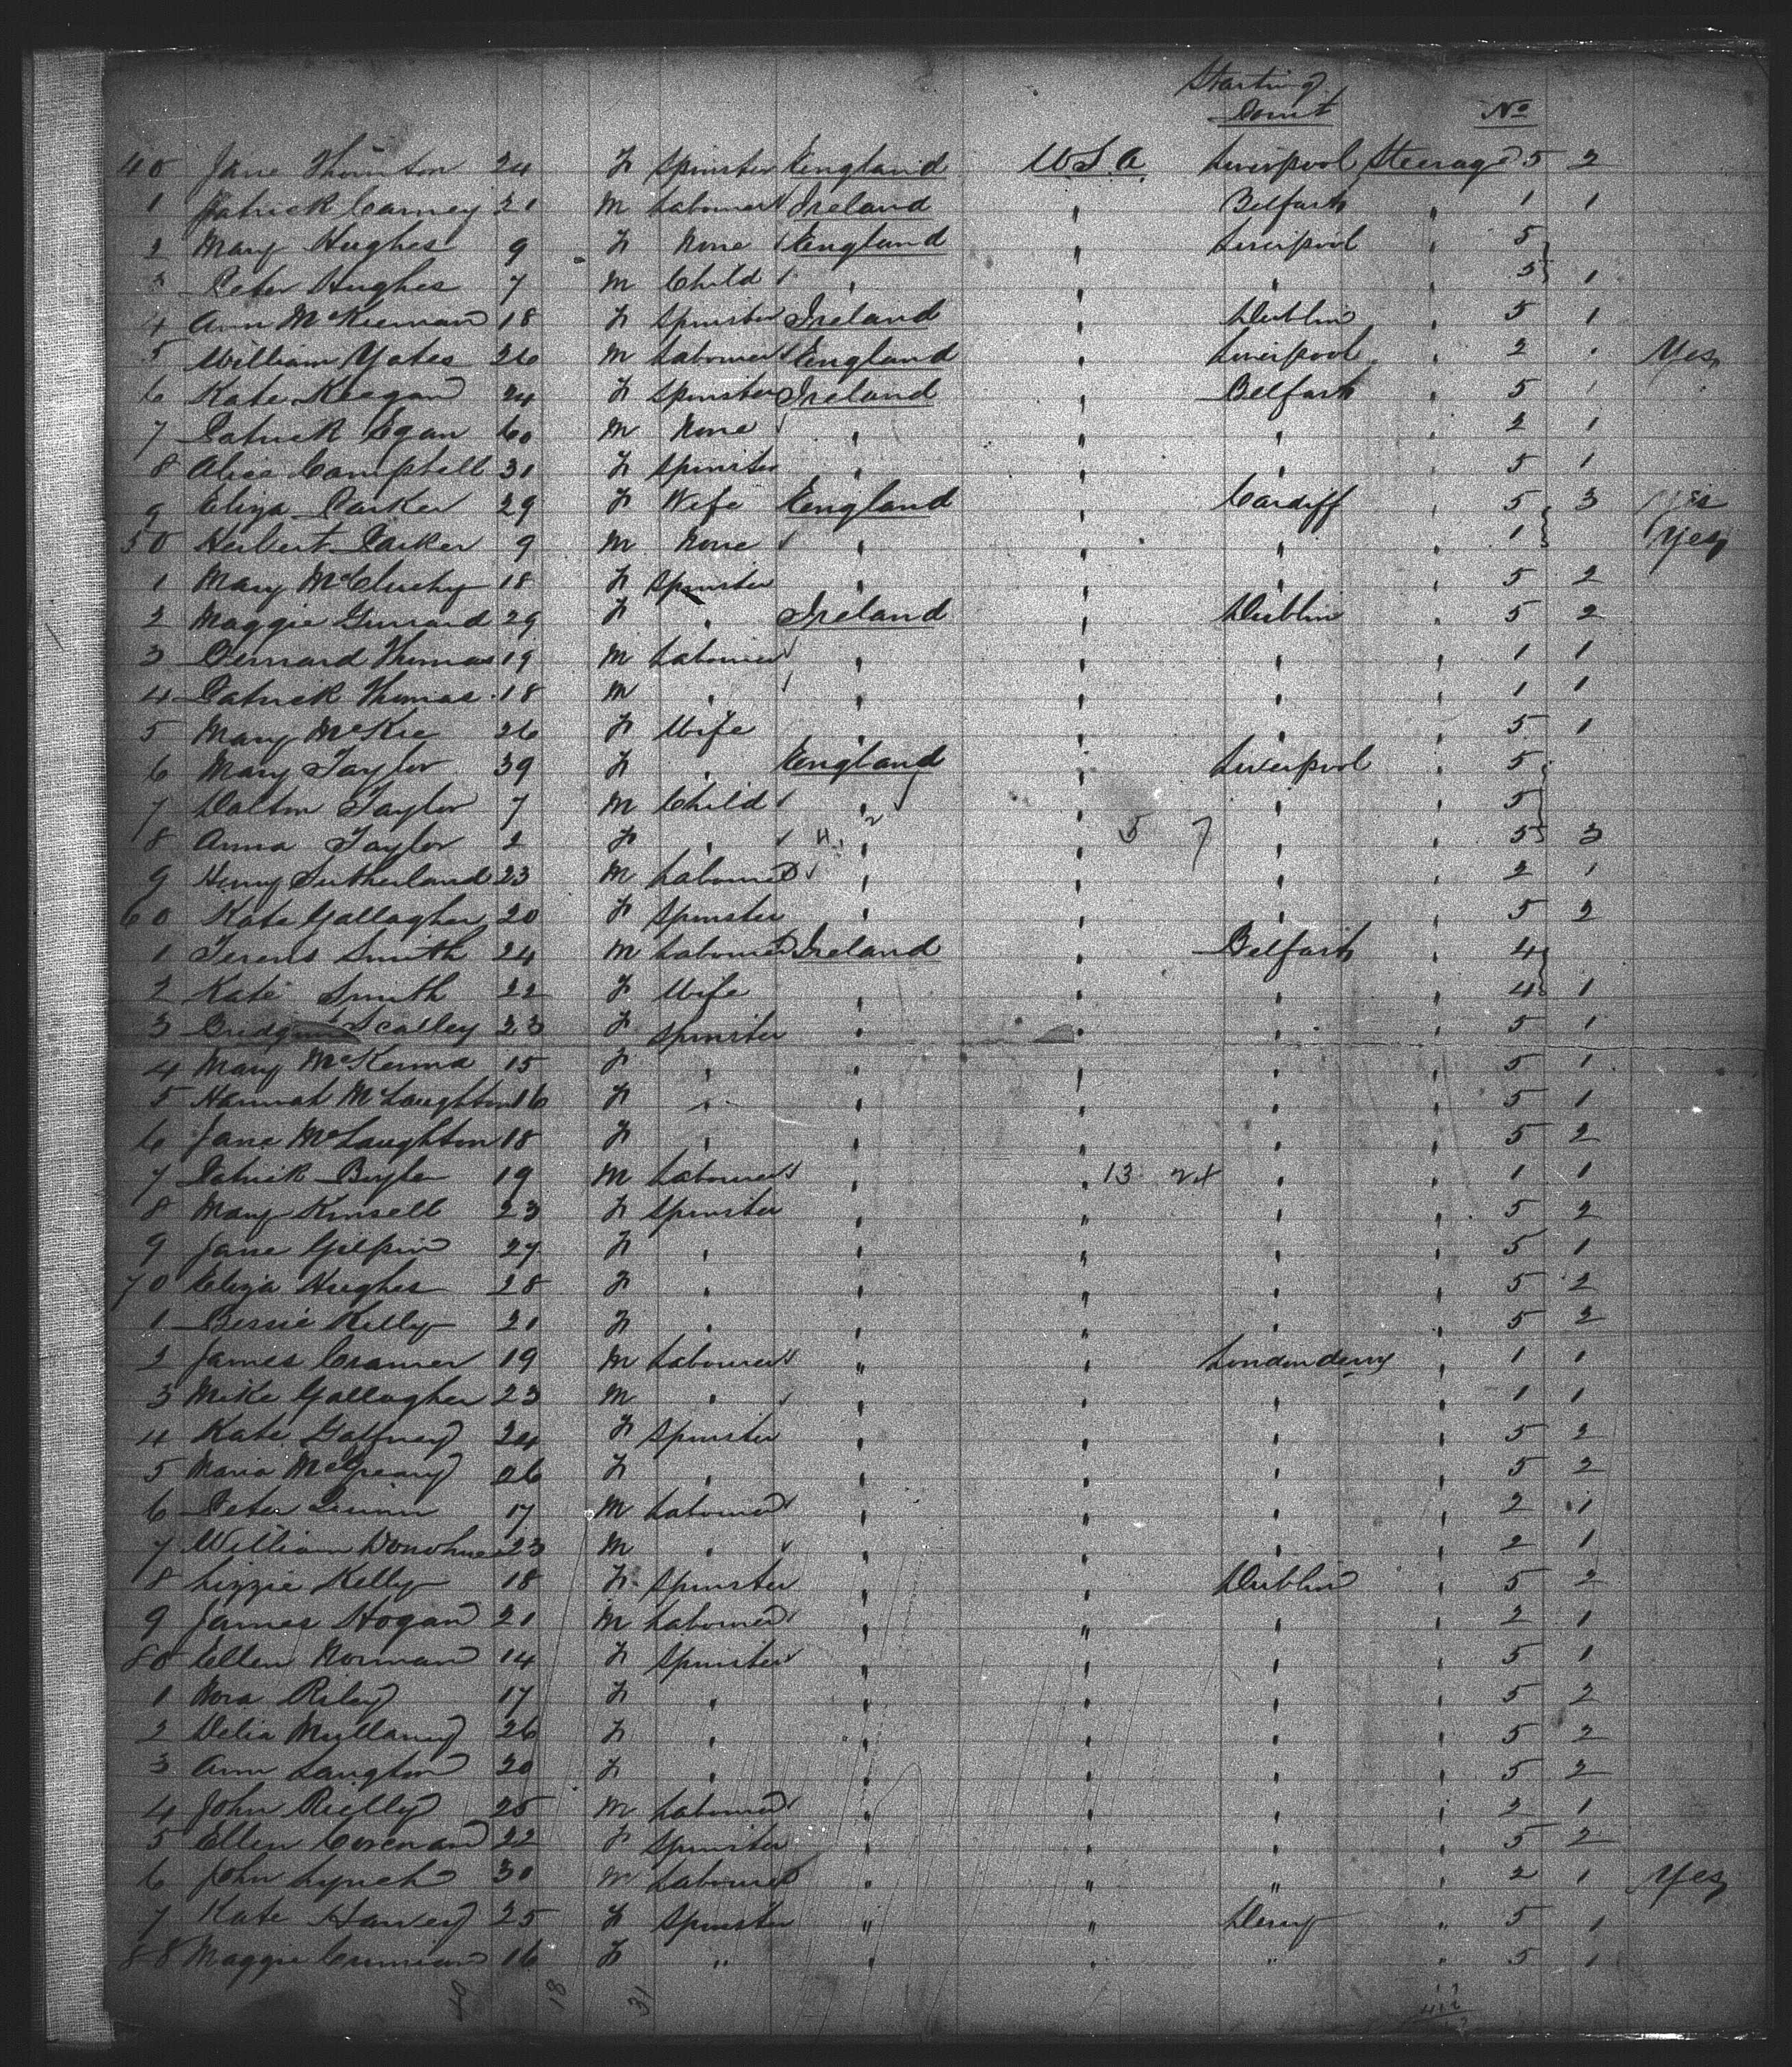 Starting
Point No
40 Jane Thornton 24 F Spinster England U.S.A. Liverpool Steerage 5 2
1 Patrick Carney 21 M Labourer Ireland " Belfast " 1 1
2 Mary Hughes 9 F None England " Liverpool 5
3 Peter Hughes 7 M Child " " " 5 1
4 Ann McKiernan 18 F Spinster Ireland " Dublin " 5 1
5 William Yates 26 M Labourer England " Liverpool " 2 " Yes
6 Kate Keegan 24 F Spinster Ireland " Belfast " 5 1
7 Patrick Egan 60 M None " " " " 2 1
8 Alice Campbell 31 F Spinster " " " " 5 1
9 Eliza Parker 29 F Wife England " Cardiff " 5 3 Yes
50 Herbert Parker 9 M None " " " " 1 Yes
1 Mary McCluchy 18 F Spinster " " " " 5 2
2 Maggie 29 F " Ireland " Dublin " 5 2
3 Bernard Thomas 19 M Labourer " " " " 1 1
4 Patrick Thomas 18 M " " " " " 1 1
5 Mary McKie 26 F Wife " " " " 5 1
6 Mary Taylor 39 F " England " Liverpool " 5
7 Dalton Taylor 7 M Child " " " " 5
8 Anna Taylor 2 F " " " 5 7 " " 5 3
9 Henry Sutherland 23 M Labourer " " " " 2 1
60 Kate Gallagher 20 F Spinster " " " " 5 2
1 Terens Smith 24 M Labourer Ireland " Belfast " 4
2 Kate Smith 22 F Wife " " " " 4 1
3 Scalley 23 F Spinster " " " " 5 1
4 Mary McKenna 15 F " " " " " 5 1
5 Hannah McLaughton 16 F " " " " " 5 1
6 Jane McLaughton 18 F " " " " " 5 2
7 Patrick Boyle 19 M Labourer " " 13 24 " " 1 1
8 Mary Kinsell 23 F Spinster " " " " 5 2
9 Jane Gilpin 27 F " " " " " 5 1
70 Eliza Hughes 28 F " " " " " 5 2
1 Bessie Kelly 21 F " " " " " 5 2
2 James Cramer 19 M Labourer " " Londonderry " 1 1
3 Mike Gallagher 23 M " " " " " 1 1
4 Kate Gaffney 24 F Spinster " " " " 5 2
5 Maria McGreary 26 F " " " " " 5 2
6 Peter Quinn 17 M Labourer " " " " 2 1
7 William Donohue 23 M " " " " " 2 1
8 Lizzie Kelly 18 F Spinster " " Dublin " 5 2
9 James Hogan 21 M Labourer " " " " 2 1
80 Ellen Norman 14 F Spinster " " " " 5 1
1 Nora Riley 17 F " " " " " 5 2
2 Delia Mullaney 26 F " " " " " 5 2
3 Ann Langton 20 F " " " " " 5 2
4 John Rielly 25 M Labourer " " " " 2 1
5 Ellen Corcoran 22 F Spinster " " " " 5 2
6 John Lynch 30 M Labourer " " " " 2 1 Yes
7 Kate Harvey 25 F Spinster " " Derry " 5 1
88 Maggie 16 F " " " " " 5 1
18 31